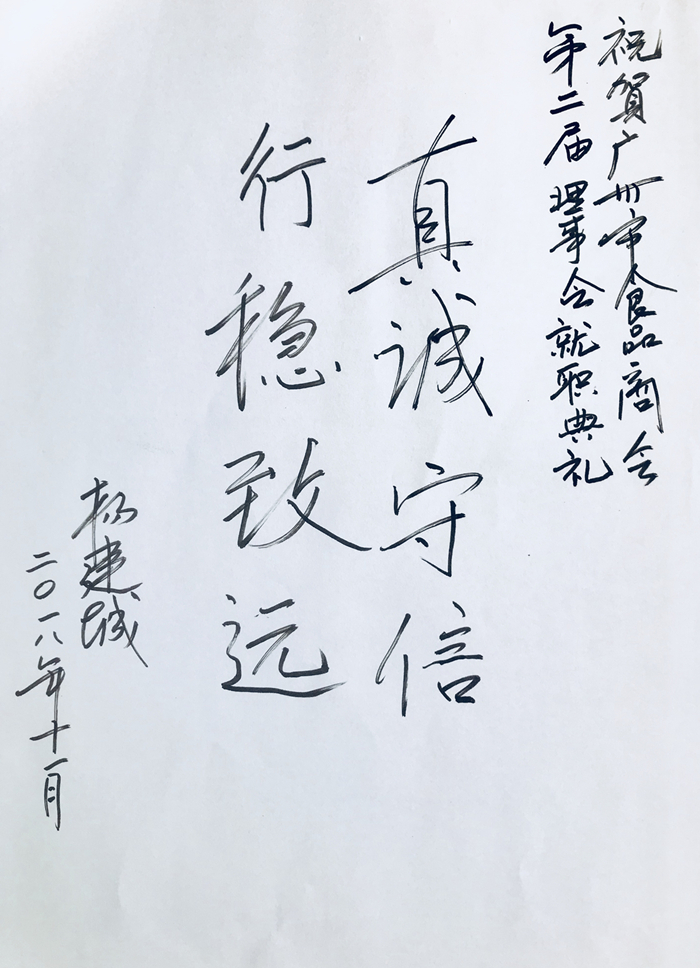 祝賀广州市食品商会
第二届理事会就职典礼
真诚守信
行稳致远
杨建城
二〇一八年十一月